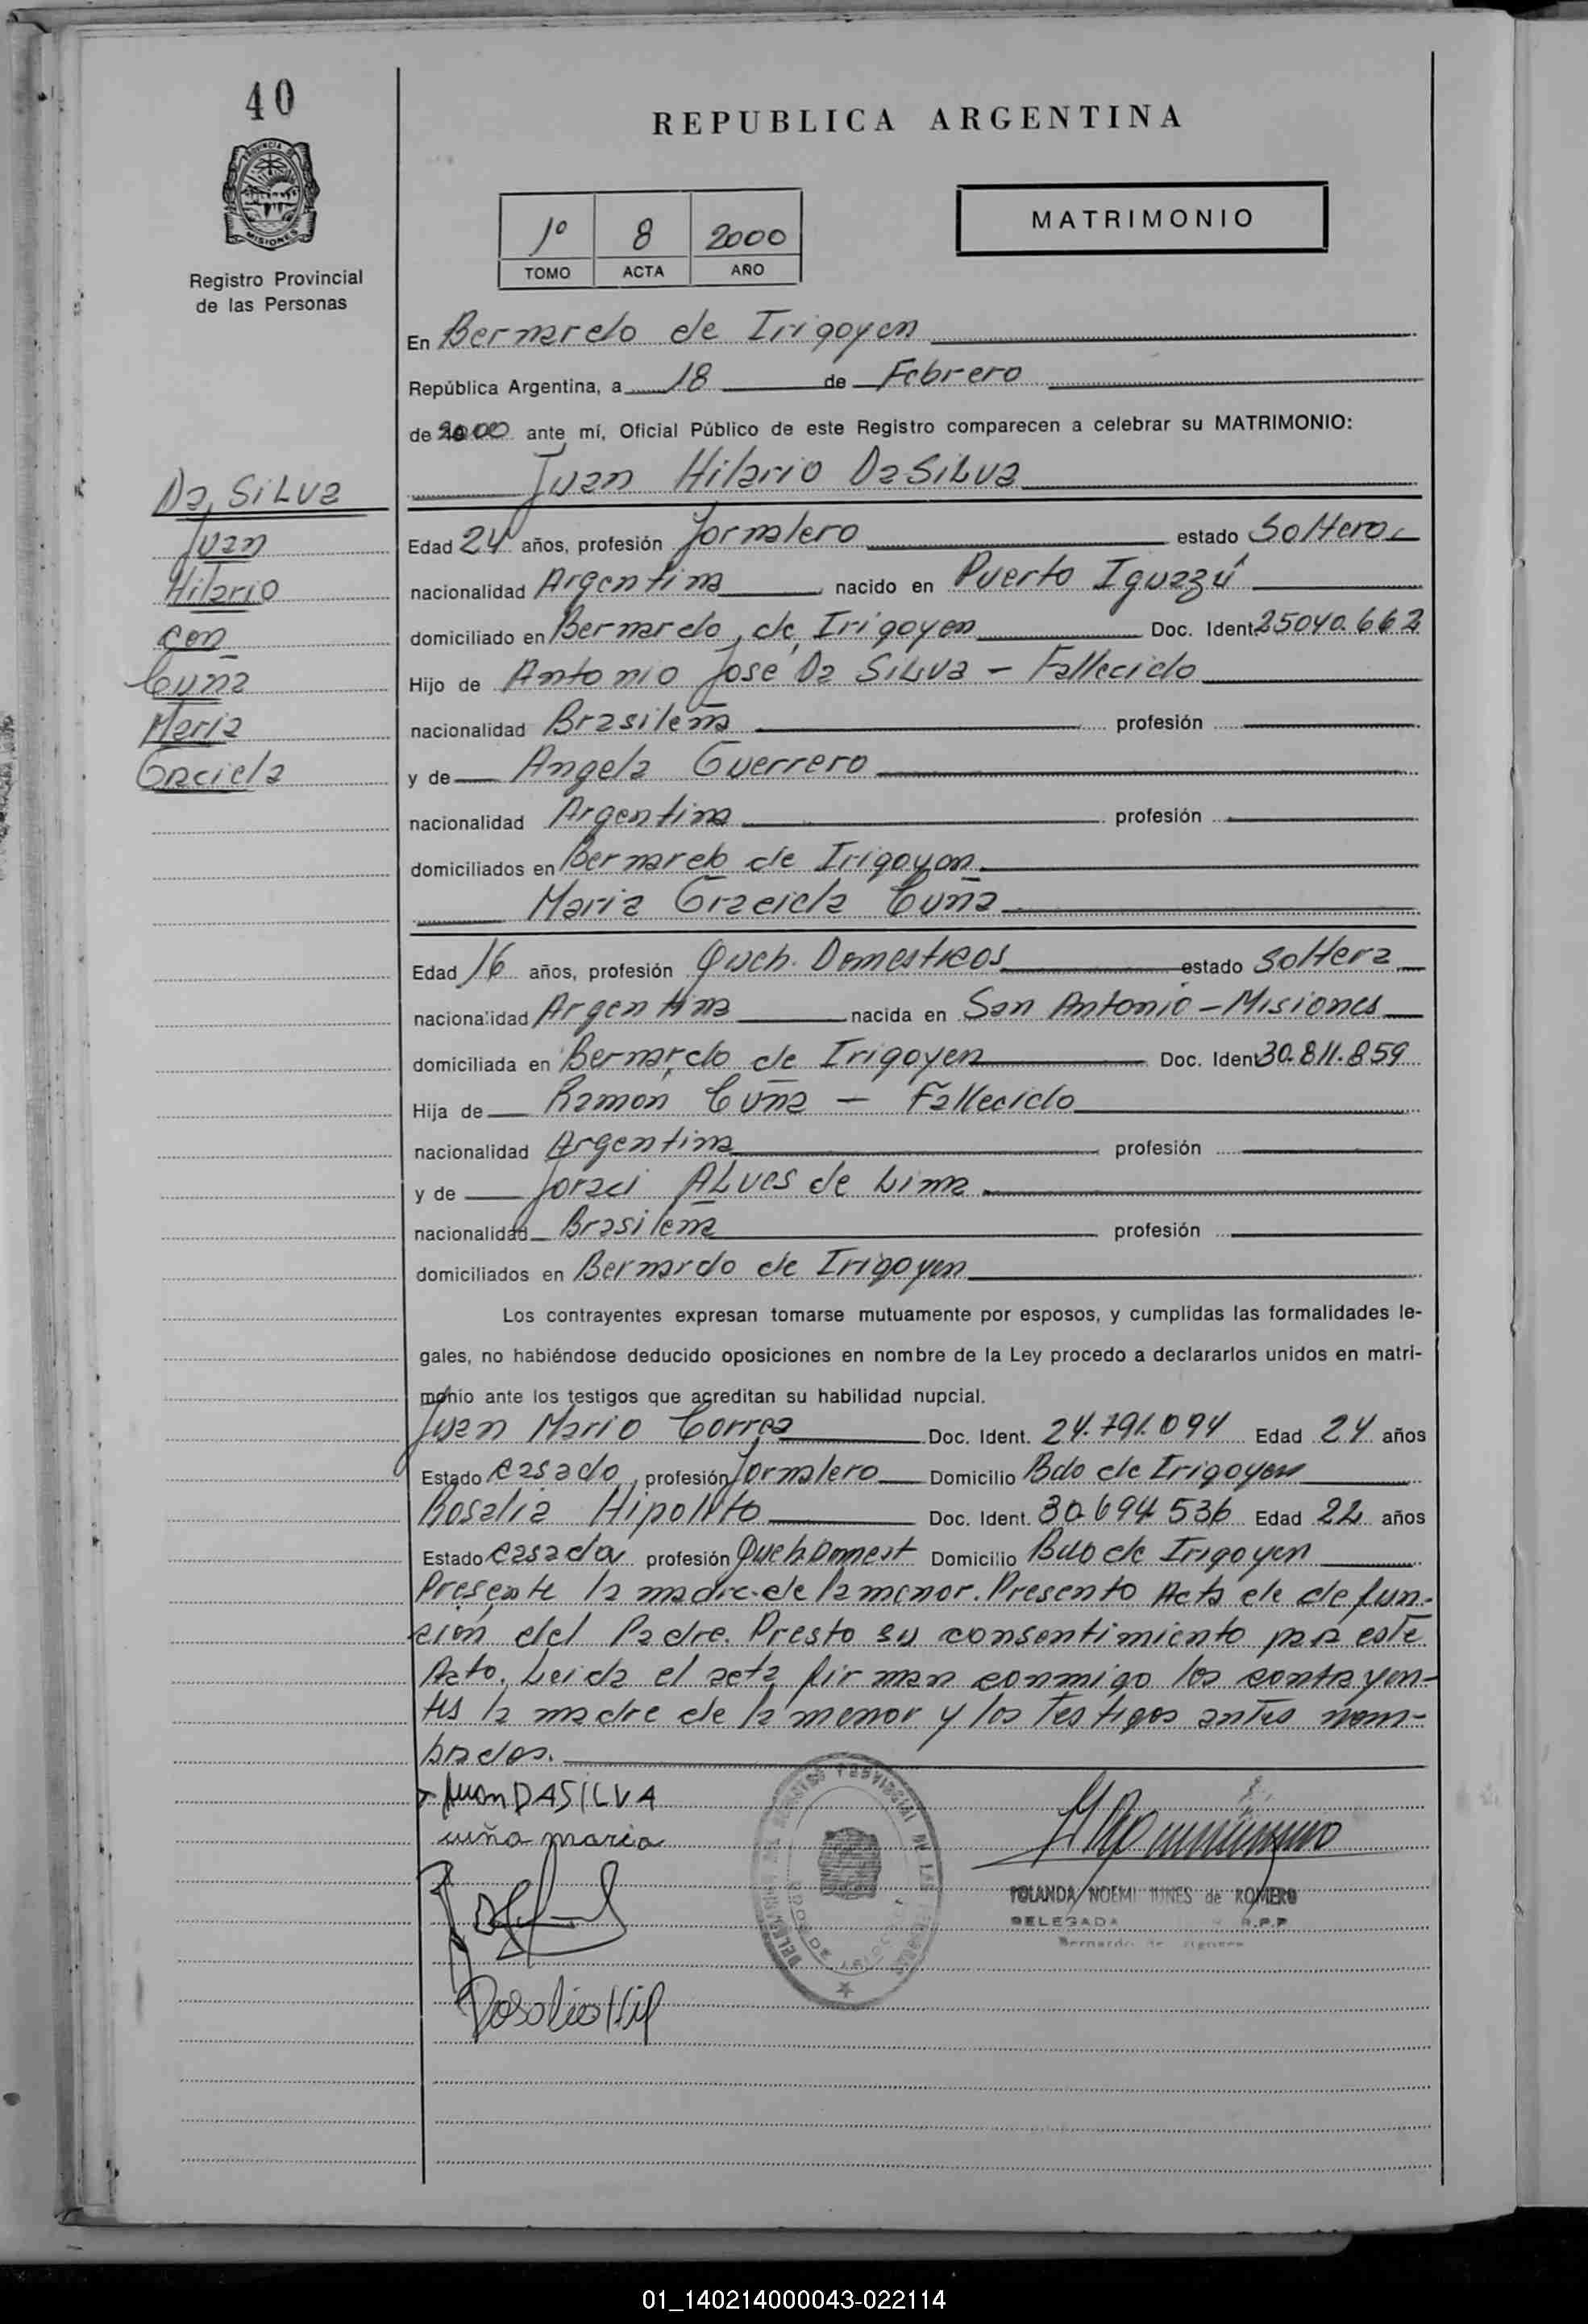 40
REPUBLICA ARGENTINA
PROVINCIA DE MISIONES
Registro Provincial
de las Personas
1º 8 2000
TOMO ACTA AÑO
MATRIMONIO
En Bernardo de Irigoyen
República Argentina, a 18 de Febrero
de 2000 ante mí, Oficial Público de este Registro comparecen a celebrar su MATRIMONIO:
Da Silva
Juan
Hilario
con
Cuña
Maria
Graciela
Juan Hilario Da Silva
Edad 24 años, profesión Jornalero estado Soltero
nacionalidad Argentina nacido en Puerto Iguazú
domiciliado en Bernardo de Irigoyen Doc. Ident. 25040.662
Hijo de Antonio José Da Silva - Fallecido
nacionalidad Brasileña profesión
y de Angela Guerrero
nacionalidad Argentina profesión
domiciliados en Bernardo de Irigoyen
Maria Graciela Cuña
Edad 16 años, profesión Queh. Domesticos estado Soltera
nacionalidad Argentina nacida en San Antonio - Misiones
domiciliada en Bernardo de Irigoyen Doc. Ident 30.811.859
Hija de Ramon Cuña - Fallecido
nacionalidad Argentina profesión
y de Joraci Alves de Lima
nacionalidad Brasileña profesión
domiciliados en Bernardo de Irigoyen
Los contrayentes expresan tomarse mutuamente por esposos, y cumplidas las formalidades le-
gales, no habiéndose deducido oposiciones en nombre de la Ley procedo a declararlos unidos en matri-
monio ante los testigos que acreditan su habilidad nupcial.
Juan Mario Correa Doc. Ident. 24.791.094 Edad 24 años
Estado casado profesión Jornalero Domicilio Bdo de Irigoyen
Rosalia Hipolito Doc. Ident. 30.694.536 Edad 22 años
Estado casada profesión Queh. Domest Domicilio Bdo de Irigoyen
Presente la madre de la menor. Presento Acta de defun-
cion del Padre. Presto su consentimiento para este
Acto. Leida el acta firman conmigo los contrayen-
tes la madre de la menor y los Testigos antes nom-
brados.
Juan DASILVA
cuña maria
Rosalia Hip
YOLANDA NOEMI NUNES de ROMERO
DELEGADA R.P.P
Bernardo de Irigoyen
01_140214000043-022114